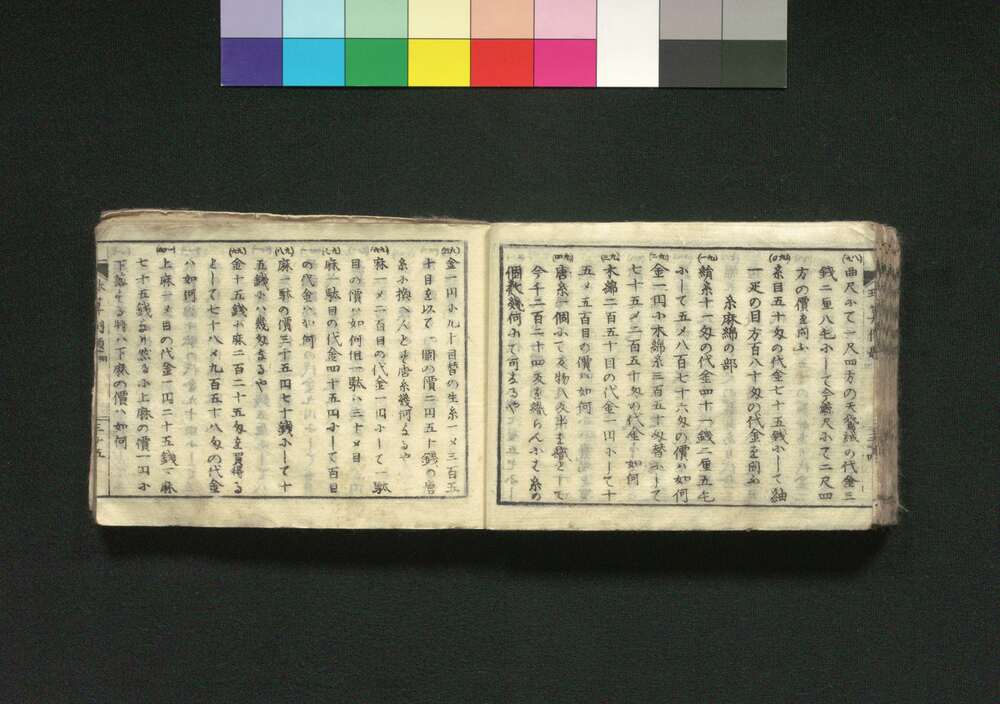 (八九)
曲尺にて一尺四方の天鵞絨の代金三
銭二厘八毛にして今鯨尺にて二尺四
方の價を問ふ
(九十)
糸目五十匁の代金七十五銭にして紬
一疋の目方百八十匁の代金を問ふ
糸麻綿の部
(九一)
績糸十一匁の代金四十一銭二厘五毛
にして五メ八百七十六匁の價ハ如何
(九二)
金一円に木綿糸三百五十匁替にして
七十五メ二百五十匁の代金ハ如何
(九三)
木綿二百五十目の代金一円にして十
五メ五百目の價ハ如何
(九四)
唐糸一個にて反物八反半を織るとして
今千二百二十四反を織らんにハ糸の
個数幾何にて可なるや
金一円に九十目替の生糸一メ三百五
十目を以て一個の價二円五十銭の唐
糸に換へんとす唐糸幾何なるや
(九六)
麻一メ二百目の代金一円にして一駄
目の價ハ如何但一駄ハ三十メ目
(九七)
麻一駄目の代金四十五円にして百目
の代金ハ如何
(九八)
麻一駄の價三十五円七十銭にして十
五銭にハ幾匁なるや
(九九)
金十五銭に麻二百二十五匁を買得る
として七十八メ九百五十八匁の代金
ハ如何
(一百)
上麻一メ目の代金一円二十五銭下麻
七十五銭なり然るに上麻の價一円に
下落する時ハ下麻の價ハ如何
三十五